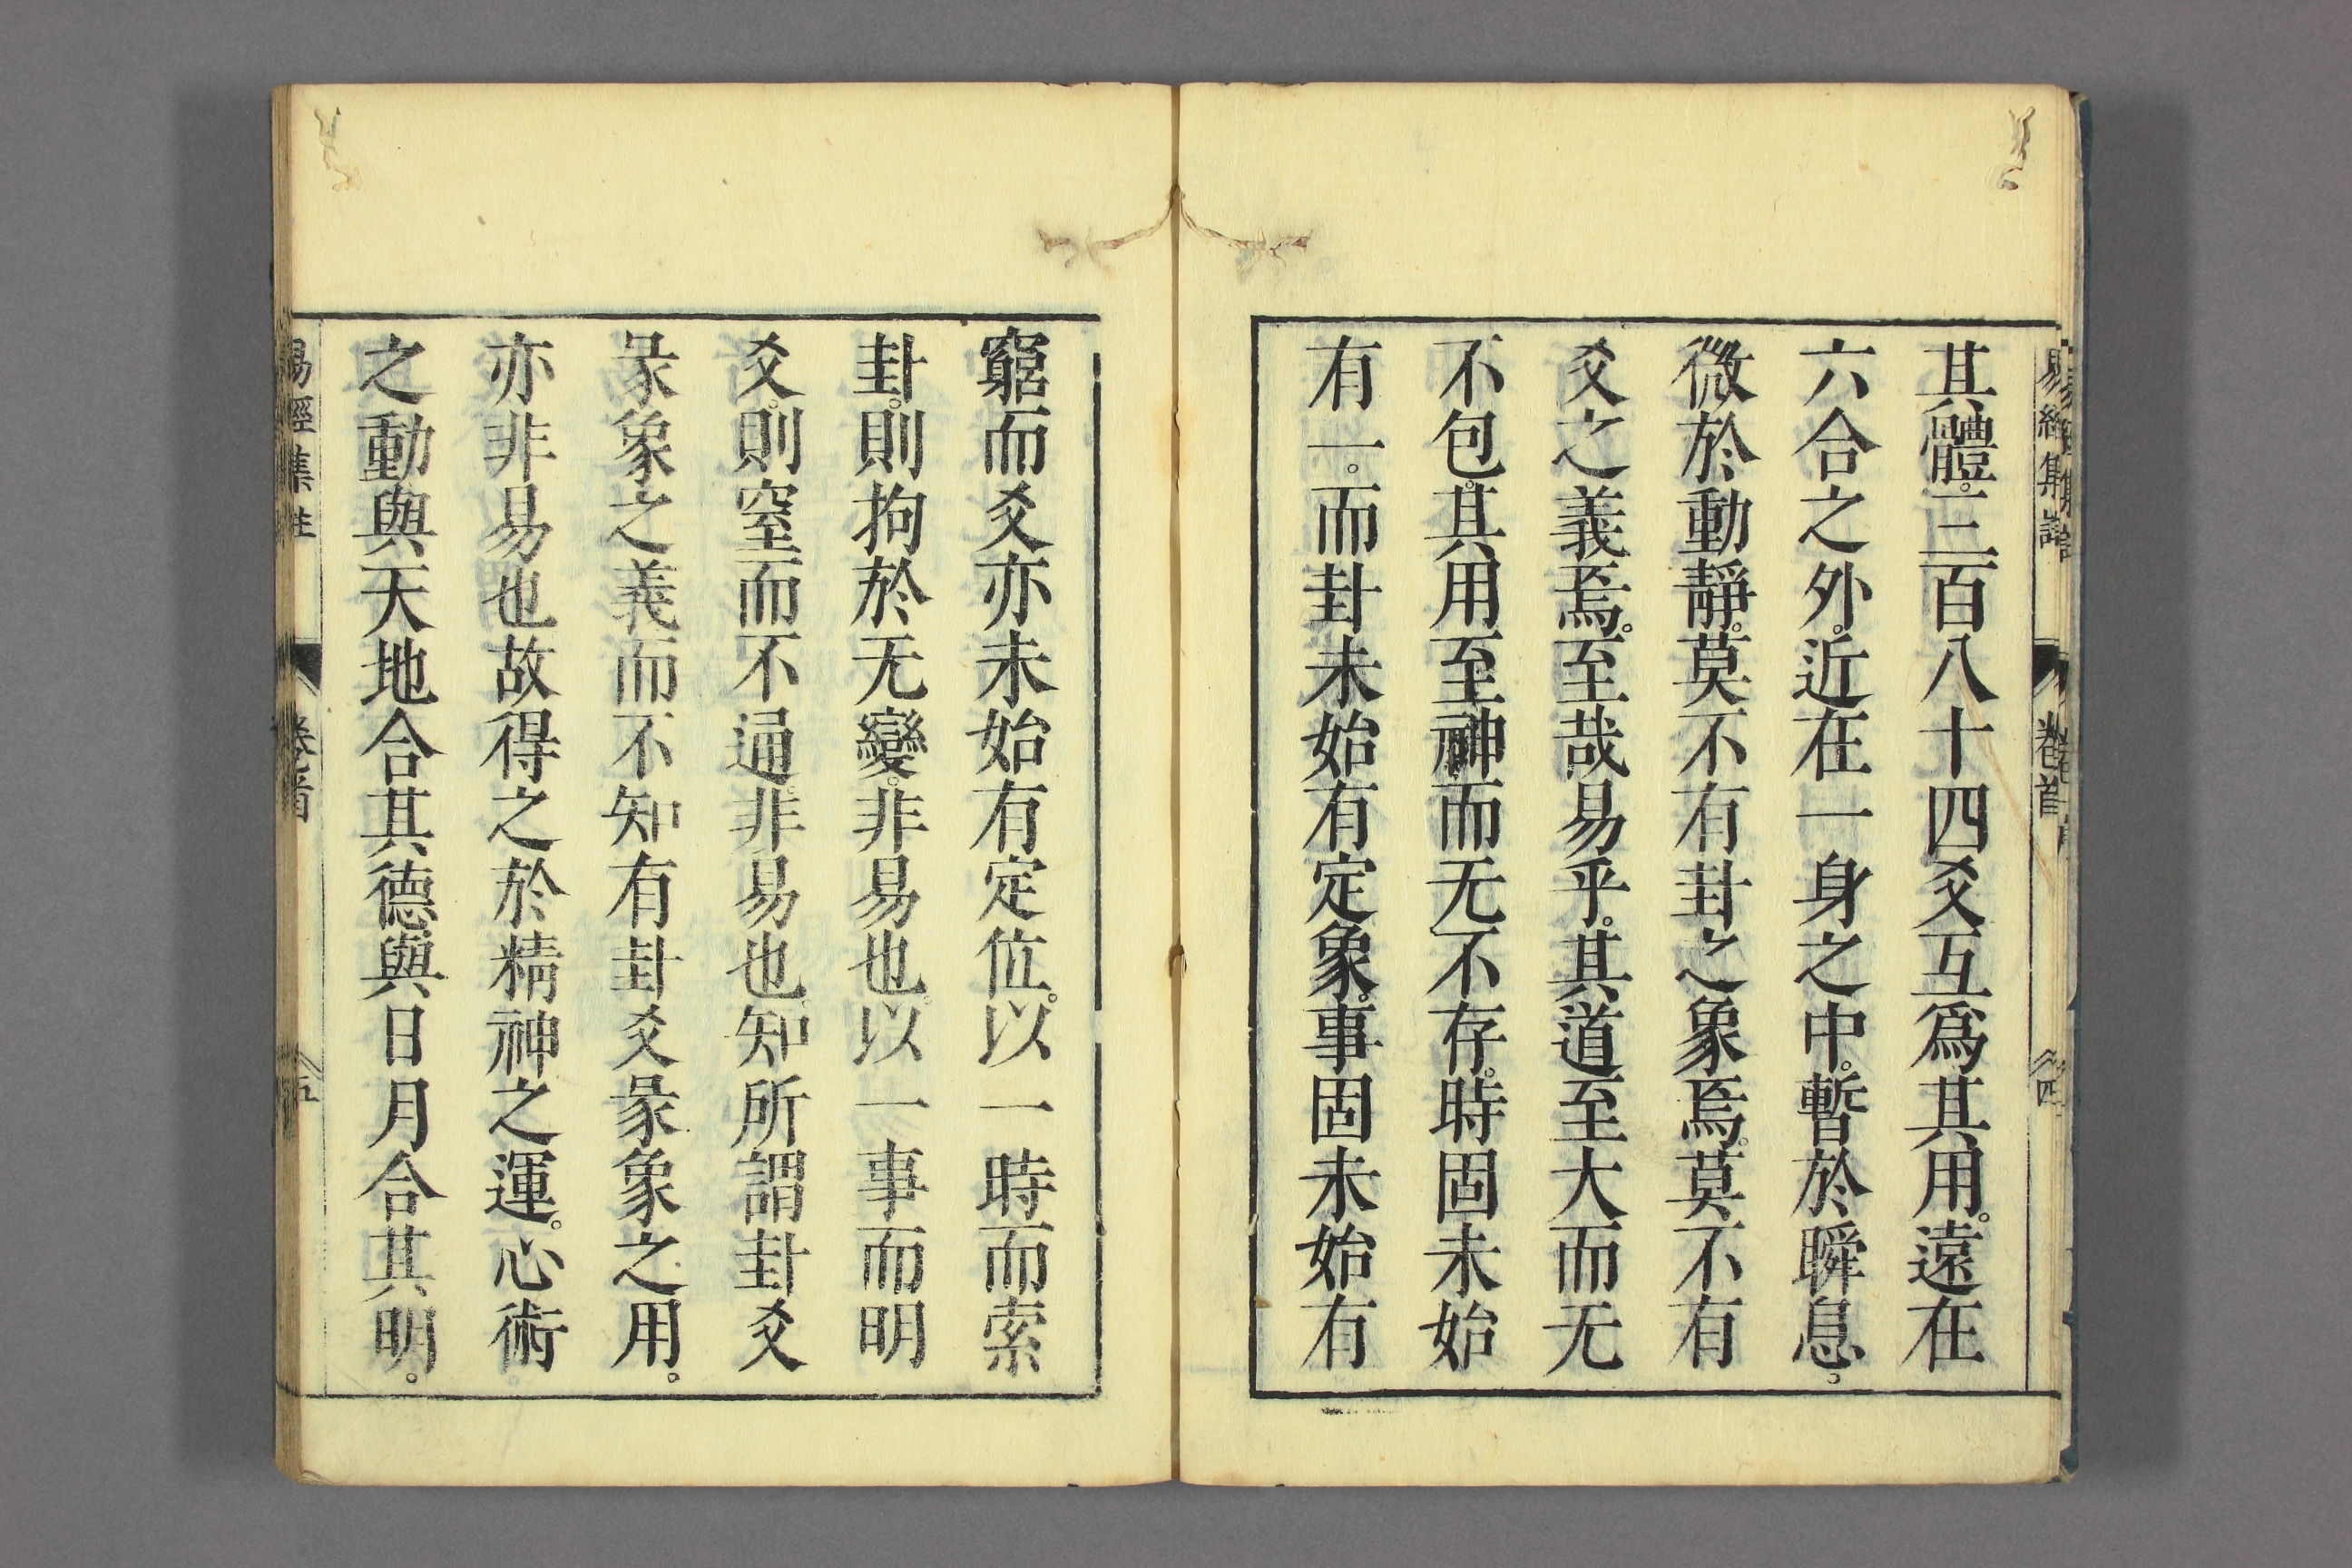 易經集註 卷首 四
其體。三百八十四爻互爲其用。遠在
六合之外。近在一身之中。暫於瞬息。
微於動靜。莫不有卦之象焉。莫不有
爻之義焉。至哉易乎。其道至大而无
不包。其用至神而无不存。時固未始
有一。而卦未始有定象。事固未始有
窮而爻亦未始有定位。以一時而索
卦。則拘於无變。非易也。以一事而明
爻。則窒而不通。非易也。知所謂卦爻
彖象之義而不知有卦爻彖象之用。
亦非易也故得之於精神之運。心術
之動與天地合其德與日月合其明。
易經集註 卷首 五